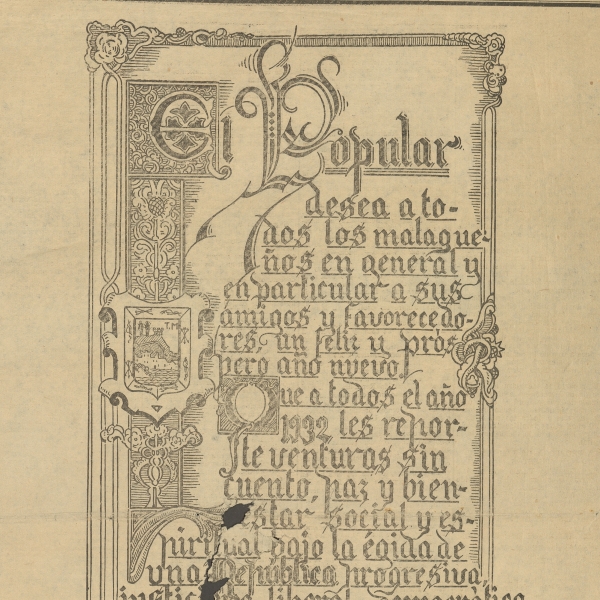 El Popular
desea a to-
dos los malague-
ños en general y
en particular a sus
amigos y favorecedo-
res, un feliz y prós-
pero año nuevo!
Que a todos el año
1932 les repor-
te venturas sin
cuento, paz y bien-
estar social y es-
piritual bajo la égida de
una República progresiva,
liberal